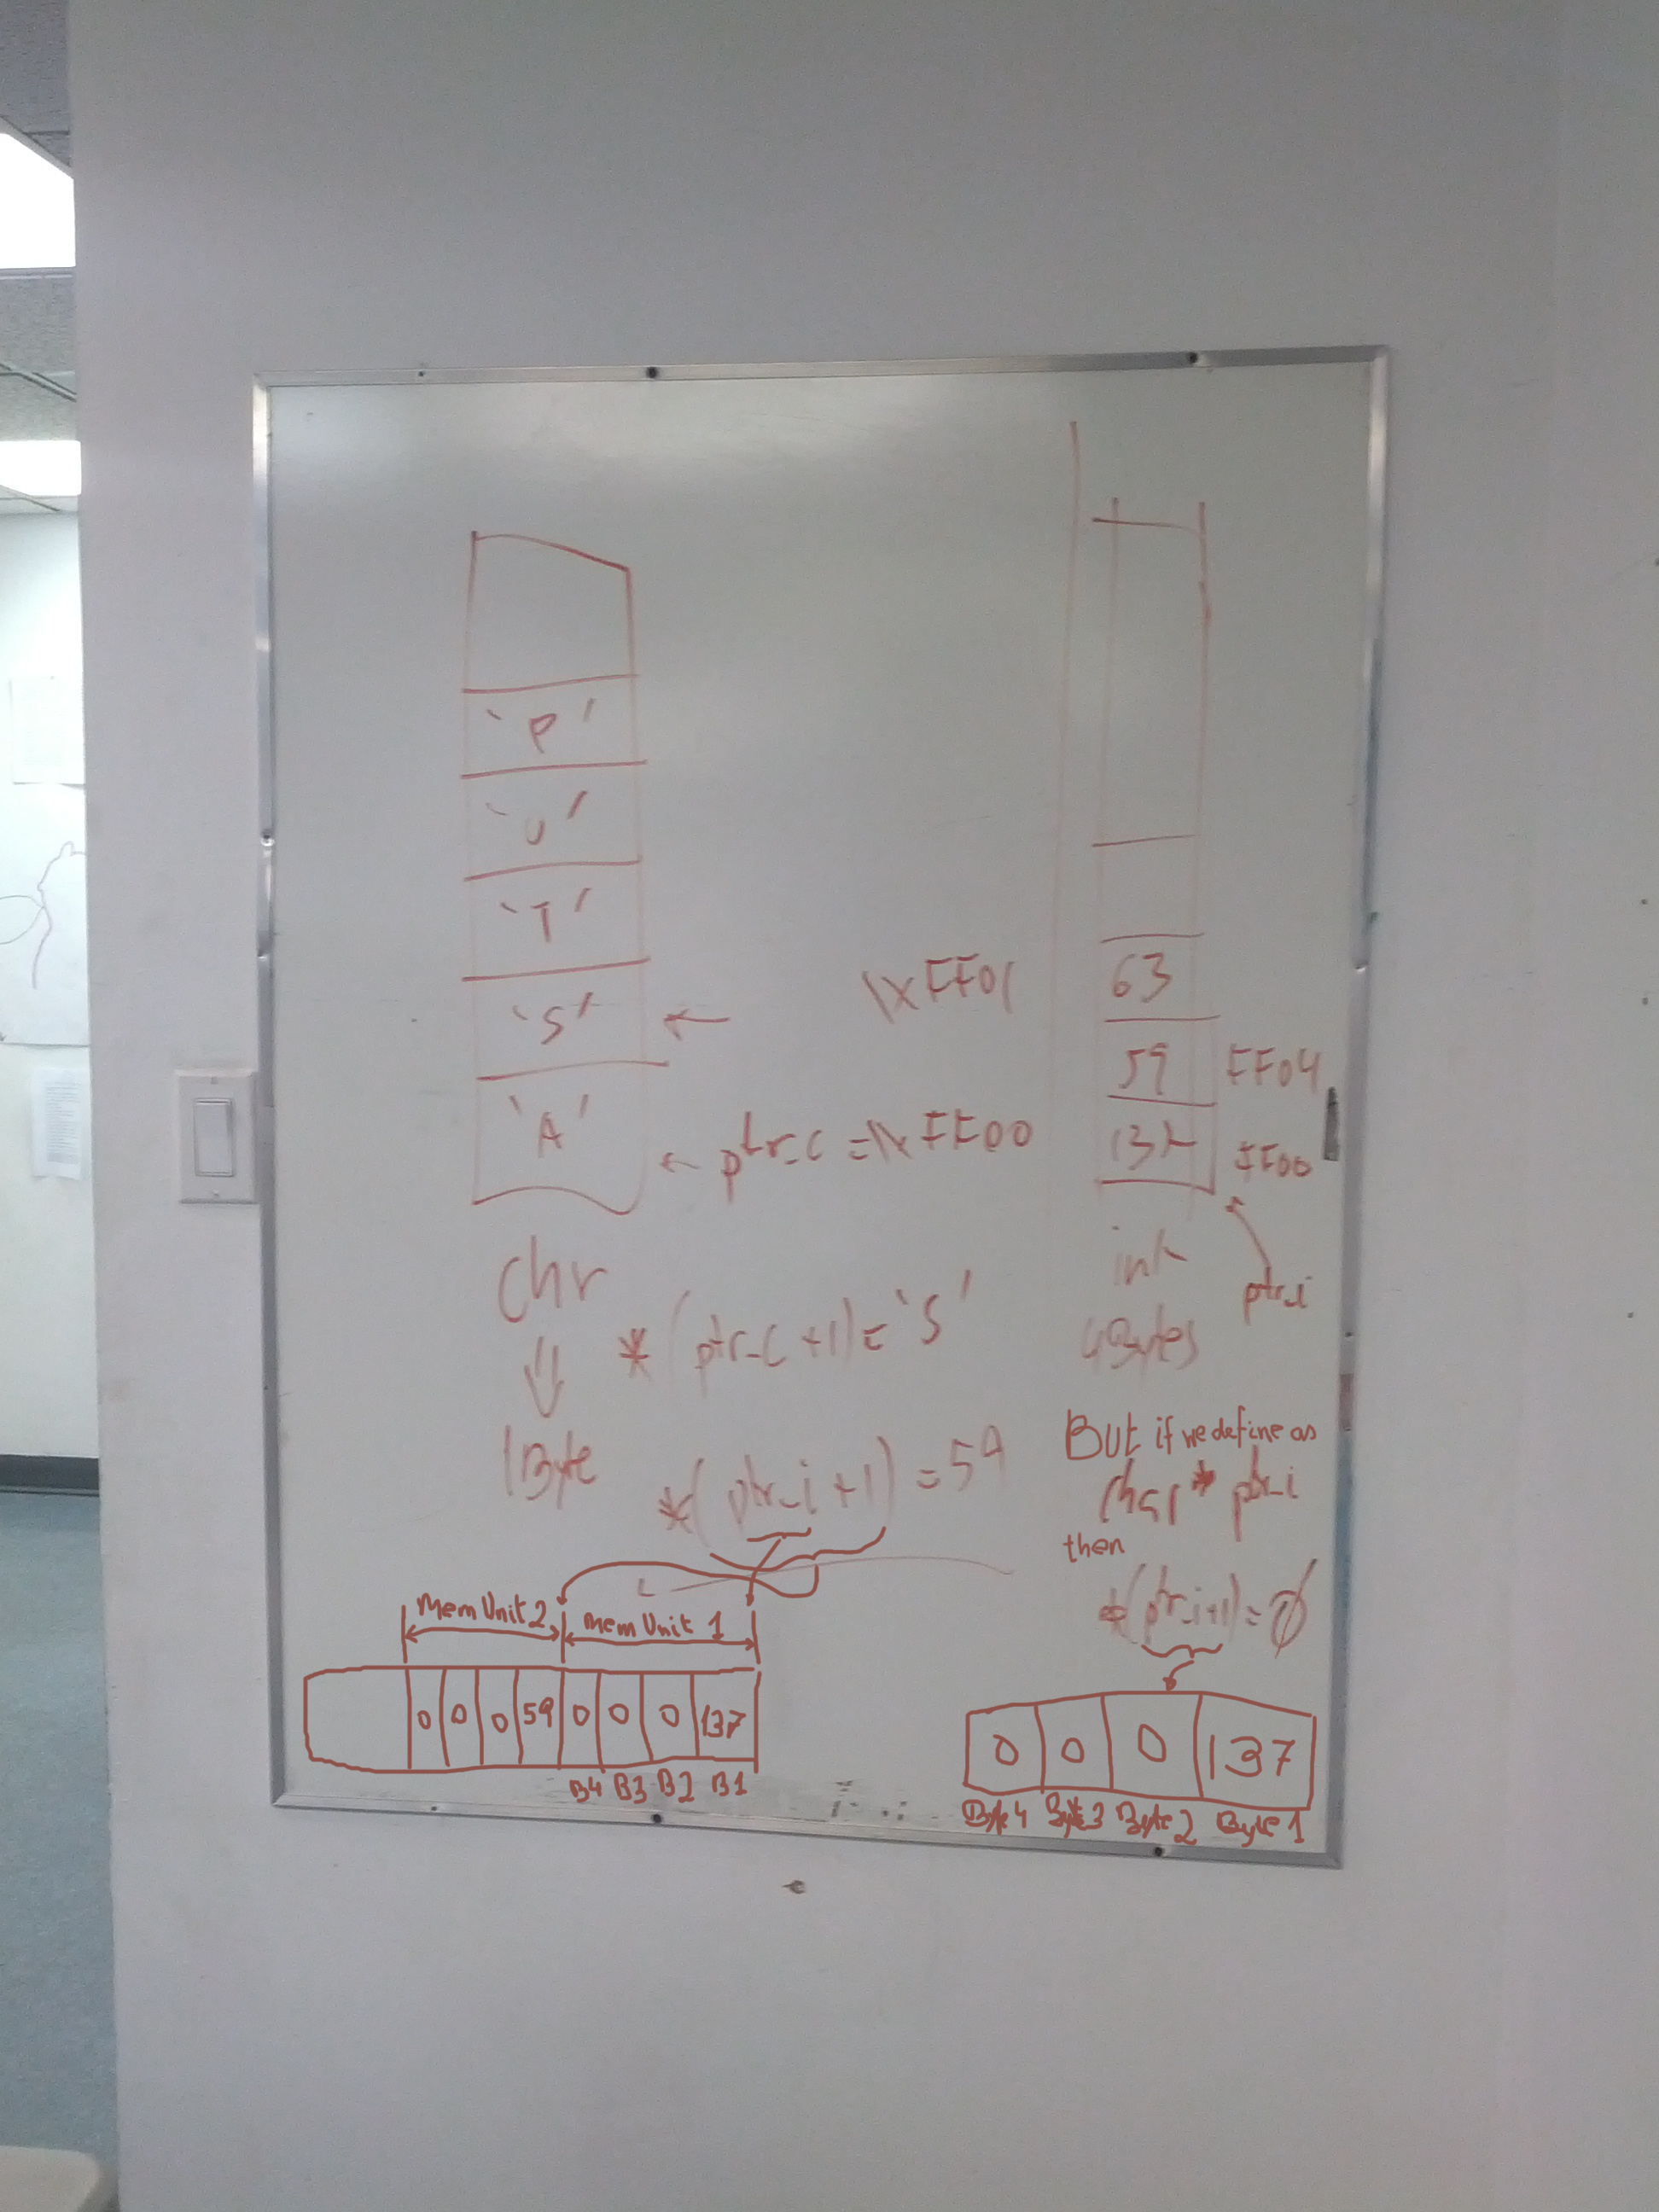 'P'
'U'
'T'
'S' ←
'A' ← ptr_c = \xFF00
\xFF01
63
59 FF04
137 FF00
ptr_i
chr
⇓
1Byte
int
4Bytes
*(ptr_c +1) = 'S'
*(ptr_i +1) = 59
But if we define as
char* ptr_i
then
*(ptr_i+1) = ∅
Mem Unit 2 Mem Unit 1
0 0 0 59 0 0 0 137
B4 B3 B2 B1
0 0 0 137
Byte 4 Byte 3 Byte 2 Byte 1